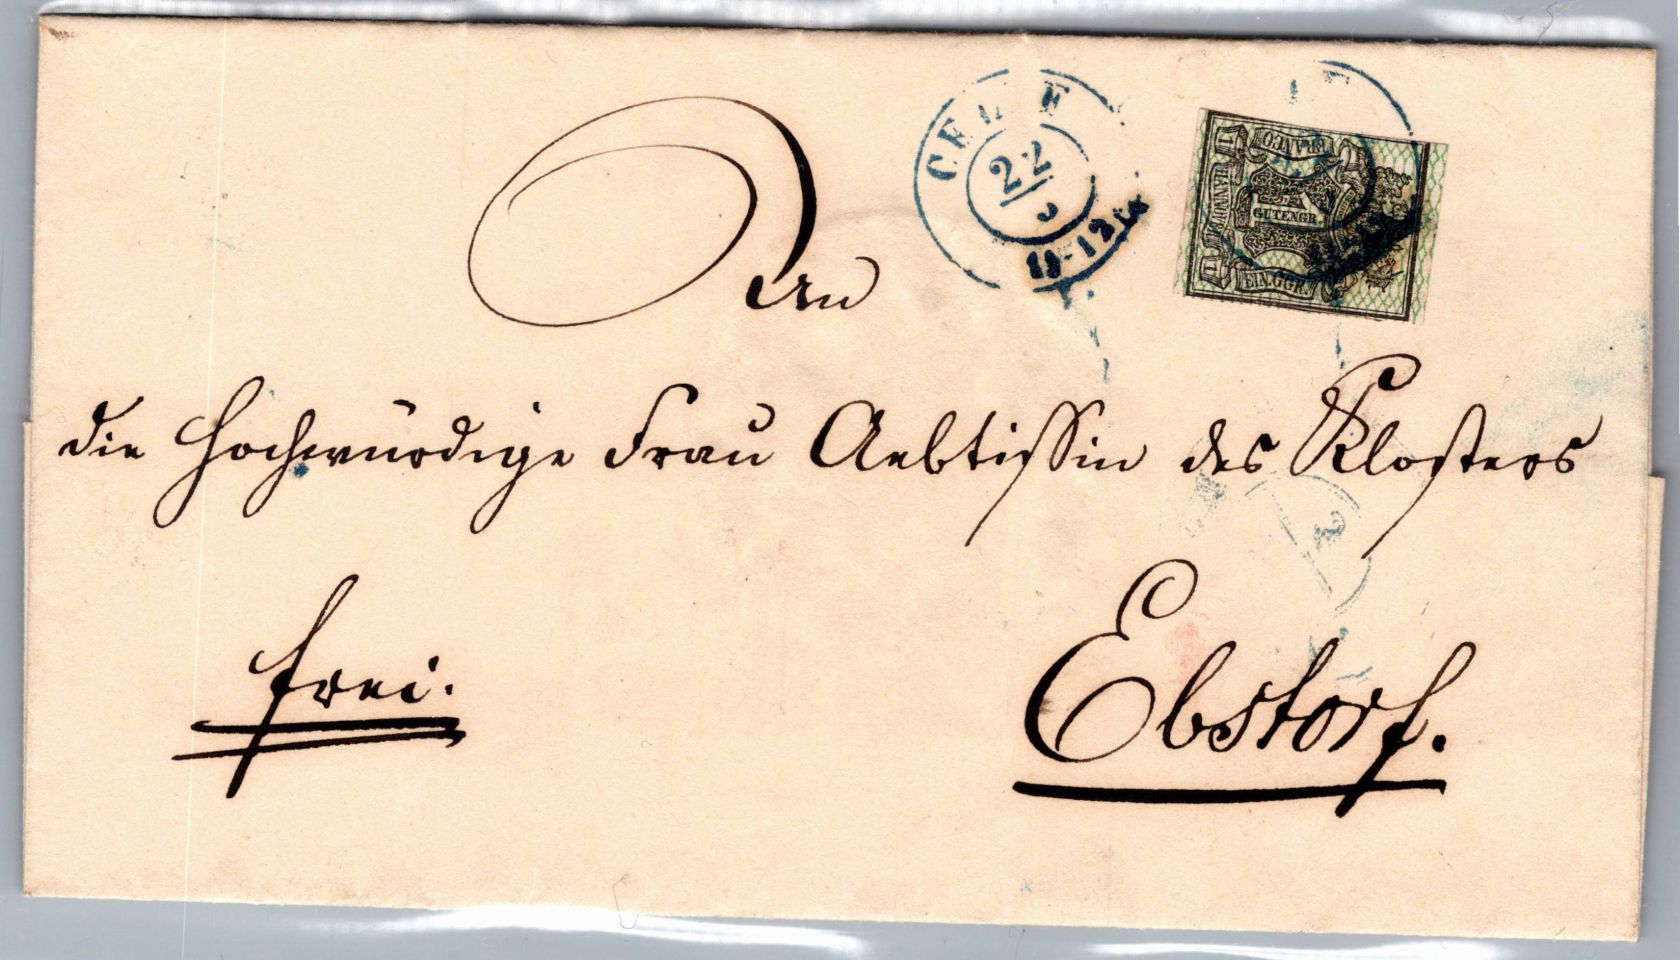 CELLE
22
11-12
FRANCO
HANNOVER
1
GUTENGR.
EIN.GGR.
An
die Hochwürdige Frau Aebtissin des Klosters
frei.
Ebstorf.